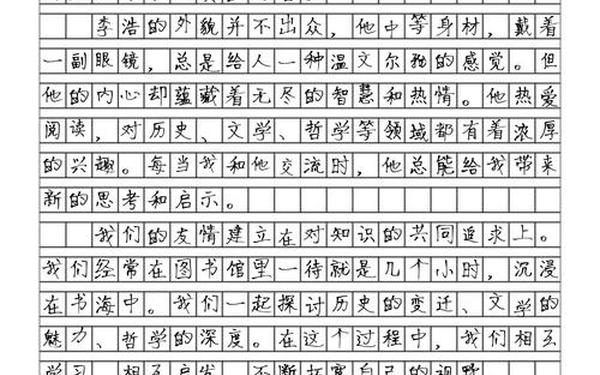 李浩的外貌并不出众，他中等身材，戴着
一副眼镜，总是给人一种温文尔雅的感觉。但
他的内心却蕴藏着无尽的智慧和热情。他热爱
阅读，对历史、文学、哲学等领域都有着浓厚
的兴趣。每当我和他交流时，他总能给我带来
新的思考和启示。
我们的友情建立在对知识的共同追求上。
我们经常在图书馆里一待就是几个小时，沉浸
在书海中。我们一起探讨历史的变迁、文学的
魅力、哲学的深度。在这个过程中，我们相互
学习，相互启发，不断拓宽自己的视野